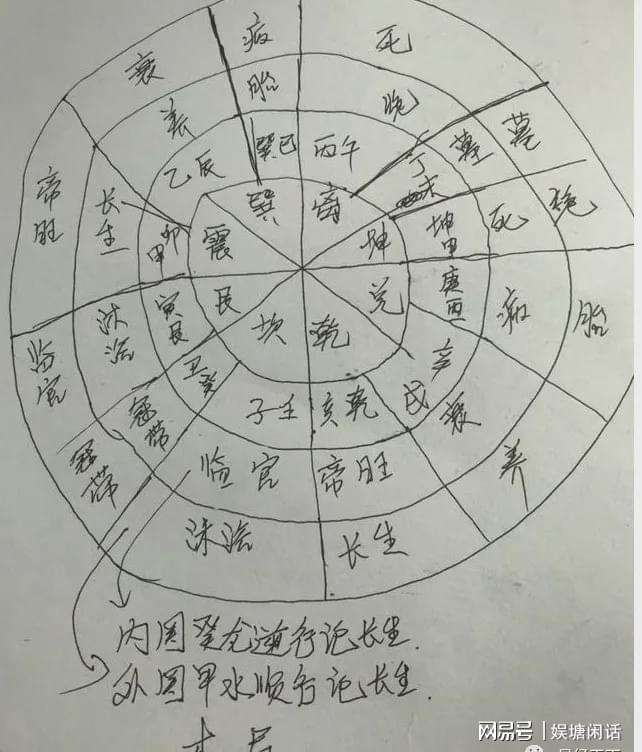 衰 病 死
养 胎 绝
乙辰 巽巳 丙午 丁未 墓 墓
帝旺 长生 甲卯 震 巽 离 坤 坤申 死 绝
临官 沐浴 寅艮 艮 坎 乾 兑 庚酉 病 胎
冠带 冠带 丑癸 子壬 亥乾 辛戌 衰 养
临官 帝旺
沐浴 长生
内圆癸龙逆行记长生.
外圆甲水顺行记长生.
木局
网易号 | 娱塘闲话